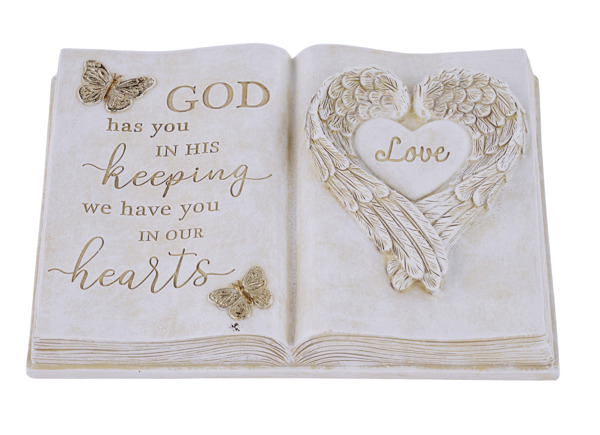 GOD
has you
IN HIS
keeping
we have you
IN OUR
hearts
Love